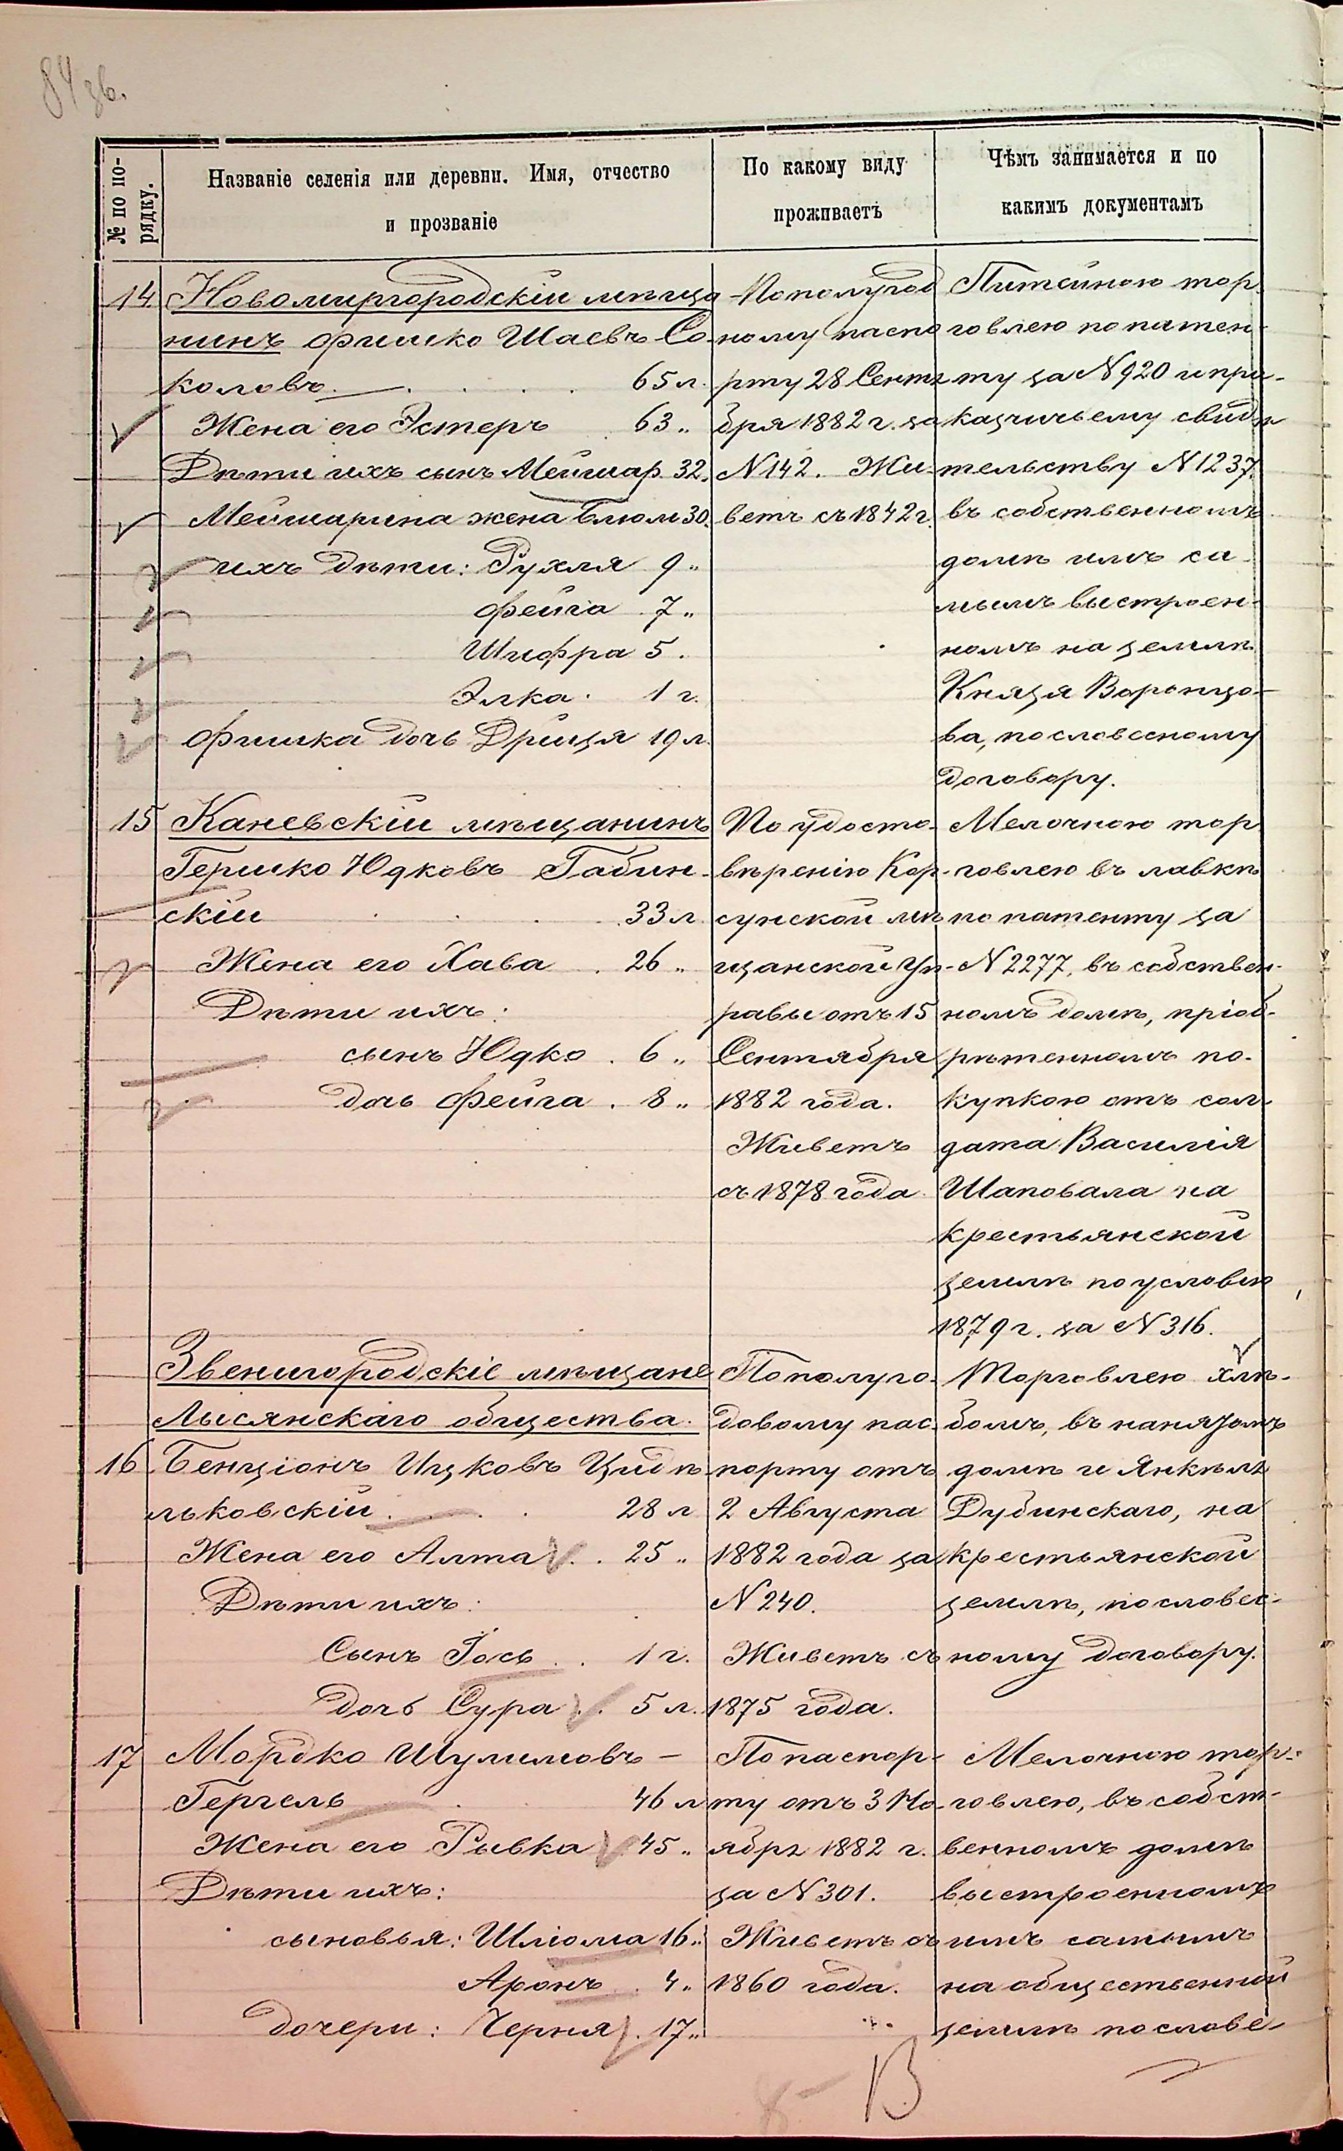 84 зв.
№ по по-
рядку.
Названіе селенія или деревни. Имя, отчество
и прозваніе
По какому виду
проживаетъ
Чѣмъ занимается и по
какимъ документамъ
14 Новомиргородскій мѣща
нинъ Фишко Шаевъ Со
коловъ 65 л.
Жена его Эстеръ 63 "
Дѣти ихъ сынъ Меймар. 32 "
Меймарина жена Блюм 30 "
ихъ дѣти: Рухля 9 "
Фейга 7 "
Шифра 5.
Элка. 1 г.
Фишка дочь Дризя 19 л.
По полугод
ному паспо
рту 28 Сентя
бря 1882 г. за
N 142. Жи-
ветъ съ 1842 г.
Питейною тор
говлею по патен-
ту за N 920 и при-
казчичьему свидѣ
тельству N 1237.
въ собственномъ
домѣ имъ са-
мымъ выстроен-
номъ на землѣ
Князя Воронцо-
ва, по словесному
договору.
15 Каневскій мѣщанинъ
Гершко Юдковъ Габин-
скій 33 л.
Жена его Хава 26 "
Дѣти ихъ:
сынъ Юдко 6 "
дочь Фейга 8 "
По удосто-
вѣренію Кор-
сунской мѣ
щанской Уп-
равы отъ 15
Сентября
1882 года.
Живетъ
съ 1878 года.
Мелочною тор
говлею въ лавкѣ
по патенту за
N 2277, въ собствен-
номъ домѣ, пріоб-
рѣтенномъ по-
купкою отъ сол-
дата Василія
Шаповала на
крестьянской
землѣ по условію
1879 г. за N 316.
Звенигородскіе мѣщане
Лысянскаго общества.
16 Бенціонъ Ицковъ Цидѣ
льковскій 28 л
Жена его Алта 25 "
Дѣти ихъ:
Сынъ Іось 1 г.
дочь Сура 5 л.
По полуго-
довому пас-
порту отъ
2 Августа
1882 года за
N 240.
Живетъ съ
1875 года.
Торговлею хлѣ-
бомъ, въ нанятомъ
домѣ и Янкеля
Дубинскаго, на
крестьянской
землѣ, по словес-
ному договору.
17 Мордко Шулимовъ -
Гергель 46 л
Жена его Рывка 45 "
Дѣти ихъ:
сыновья: Шліома 16 "
Аронъ 4 "
дочери: Черня 17 "
По паспор-
ту отъ 3 Но-
ября 1882 г.
за N 301.
Живетъ съ
1860 года.
Мелочною тор-
говлею, въ собст-
венномъ домѣ
выстроенномъ
имъ самымъ
на общественной
землѣ по слове-